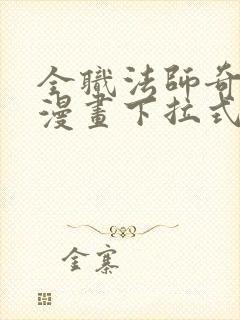 全職法師奇
漫畫下拉式
金寨